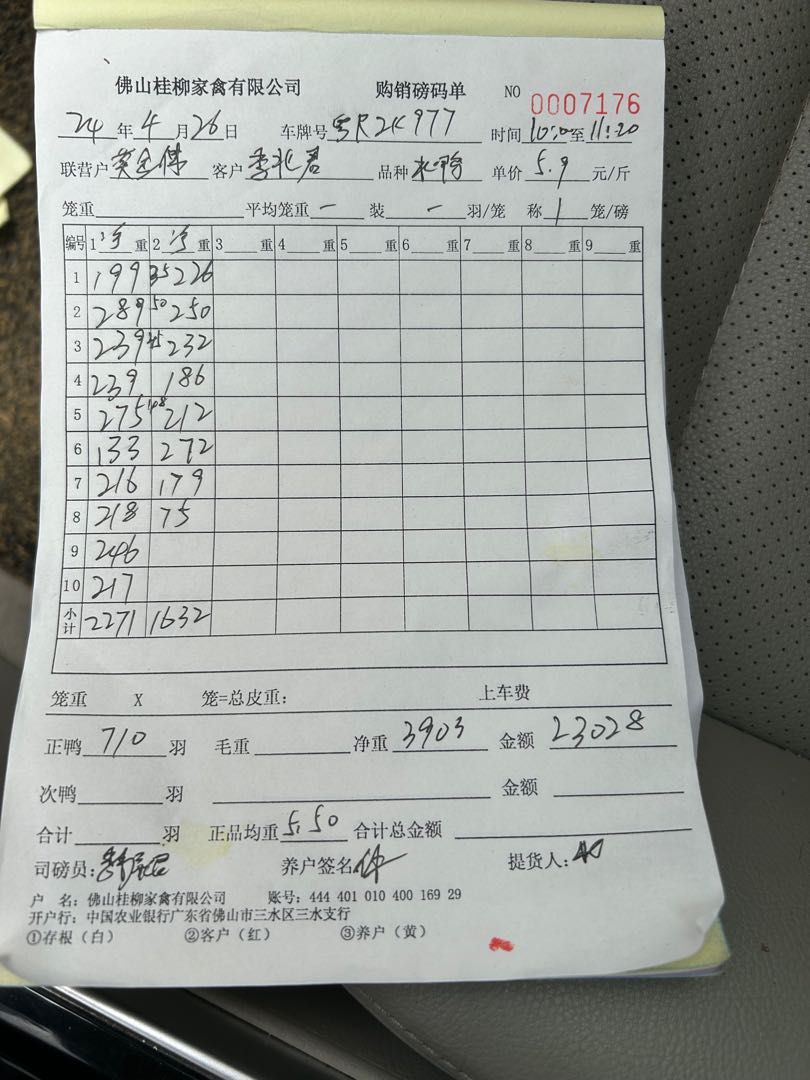 佛山桂柳家禽有限公司 购销磅码单 NO 0007176
24年4月26日 车牌号 粤R2K977 时间 10:00至11:20
联营户 英金伟 客户 李兆君 品种 水鸭 单价 5.9 元/斤
笼重 平均笼重 一 装 一 羽/笼 称 1 笼/磅
编号 1 净重 2 净重 3 重 4 重 5 重 6 重 7 重 8 重 9 重
1 199 35 226
2 289 50 250
3 239 45 232
4 239 186
5 275 148 212
6 133 272
7 216 179
8 218 75
9 246
10 217
小计 2271 1632
笼重 X 笼=总皮重: 上车费
正鸭 710 羽 毛重 净重 3903 金额 23028
次鸭 羽 金额
合计 羽 正品均重 5.50 合计总金额
司磅员: 养户签名 伟 提货人:
户 名: 佛山桂柳家禽有限公司 账号: 444 401 010 400 169 29
开户行: 中国农业银行广东省佛山市三水区三水支行
①存根（白） ②客户（红） ③养户（黄）